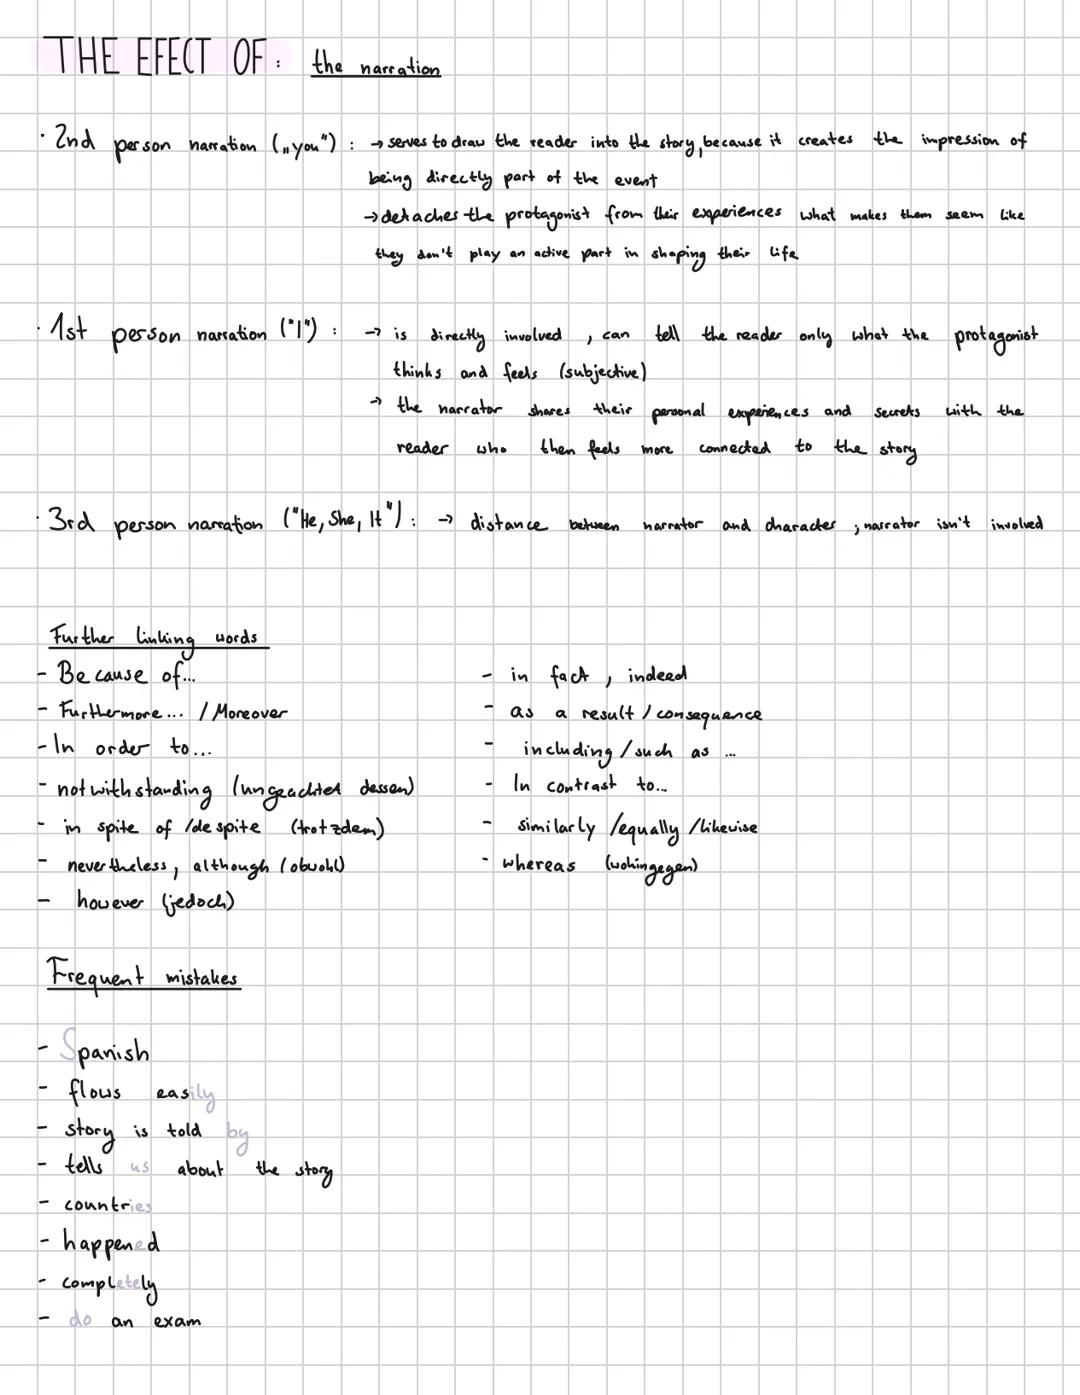 THE EFECT OF: the narration
· 2nd person narration („you") : → serves to draw the reader into the story, because it creates the impression of
being directly part of the event
→ detaches the protagonist from their experiences what makes them seem like
they don't play an active part in shaping their life
· 1st person narration ("I") : → is directly involved , can tell the reader only what the protagonist
thinks and feels (subjective)
→ the narrator shares their personal experiences and secrets with the
reader who then feels more connected to the story
· 3rd person narration ("He, She, It") : → distance between narrator and character ; narrator isn't involved
Further linking words
- Because of...
- Furthermore... / Moreover
- In order to...
- notwithstanding (ungeachtet dessen)
- in spite of /despite (trotzdem)
- nevertheless, although (obwohl)
- however (jedoch)
- in fact , indeed
- as a result / consequence
- including / such as ...
- In contrast to...
- similarly /equally /likewise
- whereas (wohingegen)
Frequent mistakes
- Spanish
- flows easily
- story is told by
- tells us about the story
- countries
- happened
- completely
- do an exam